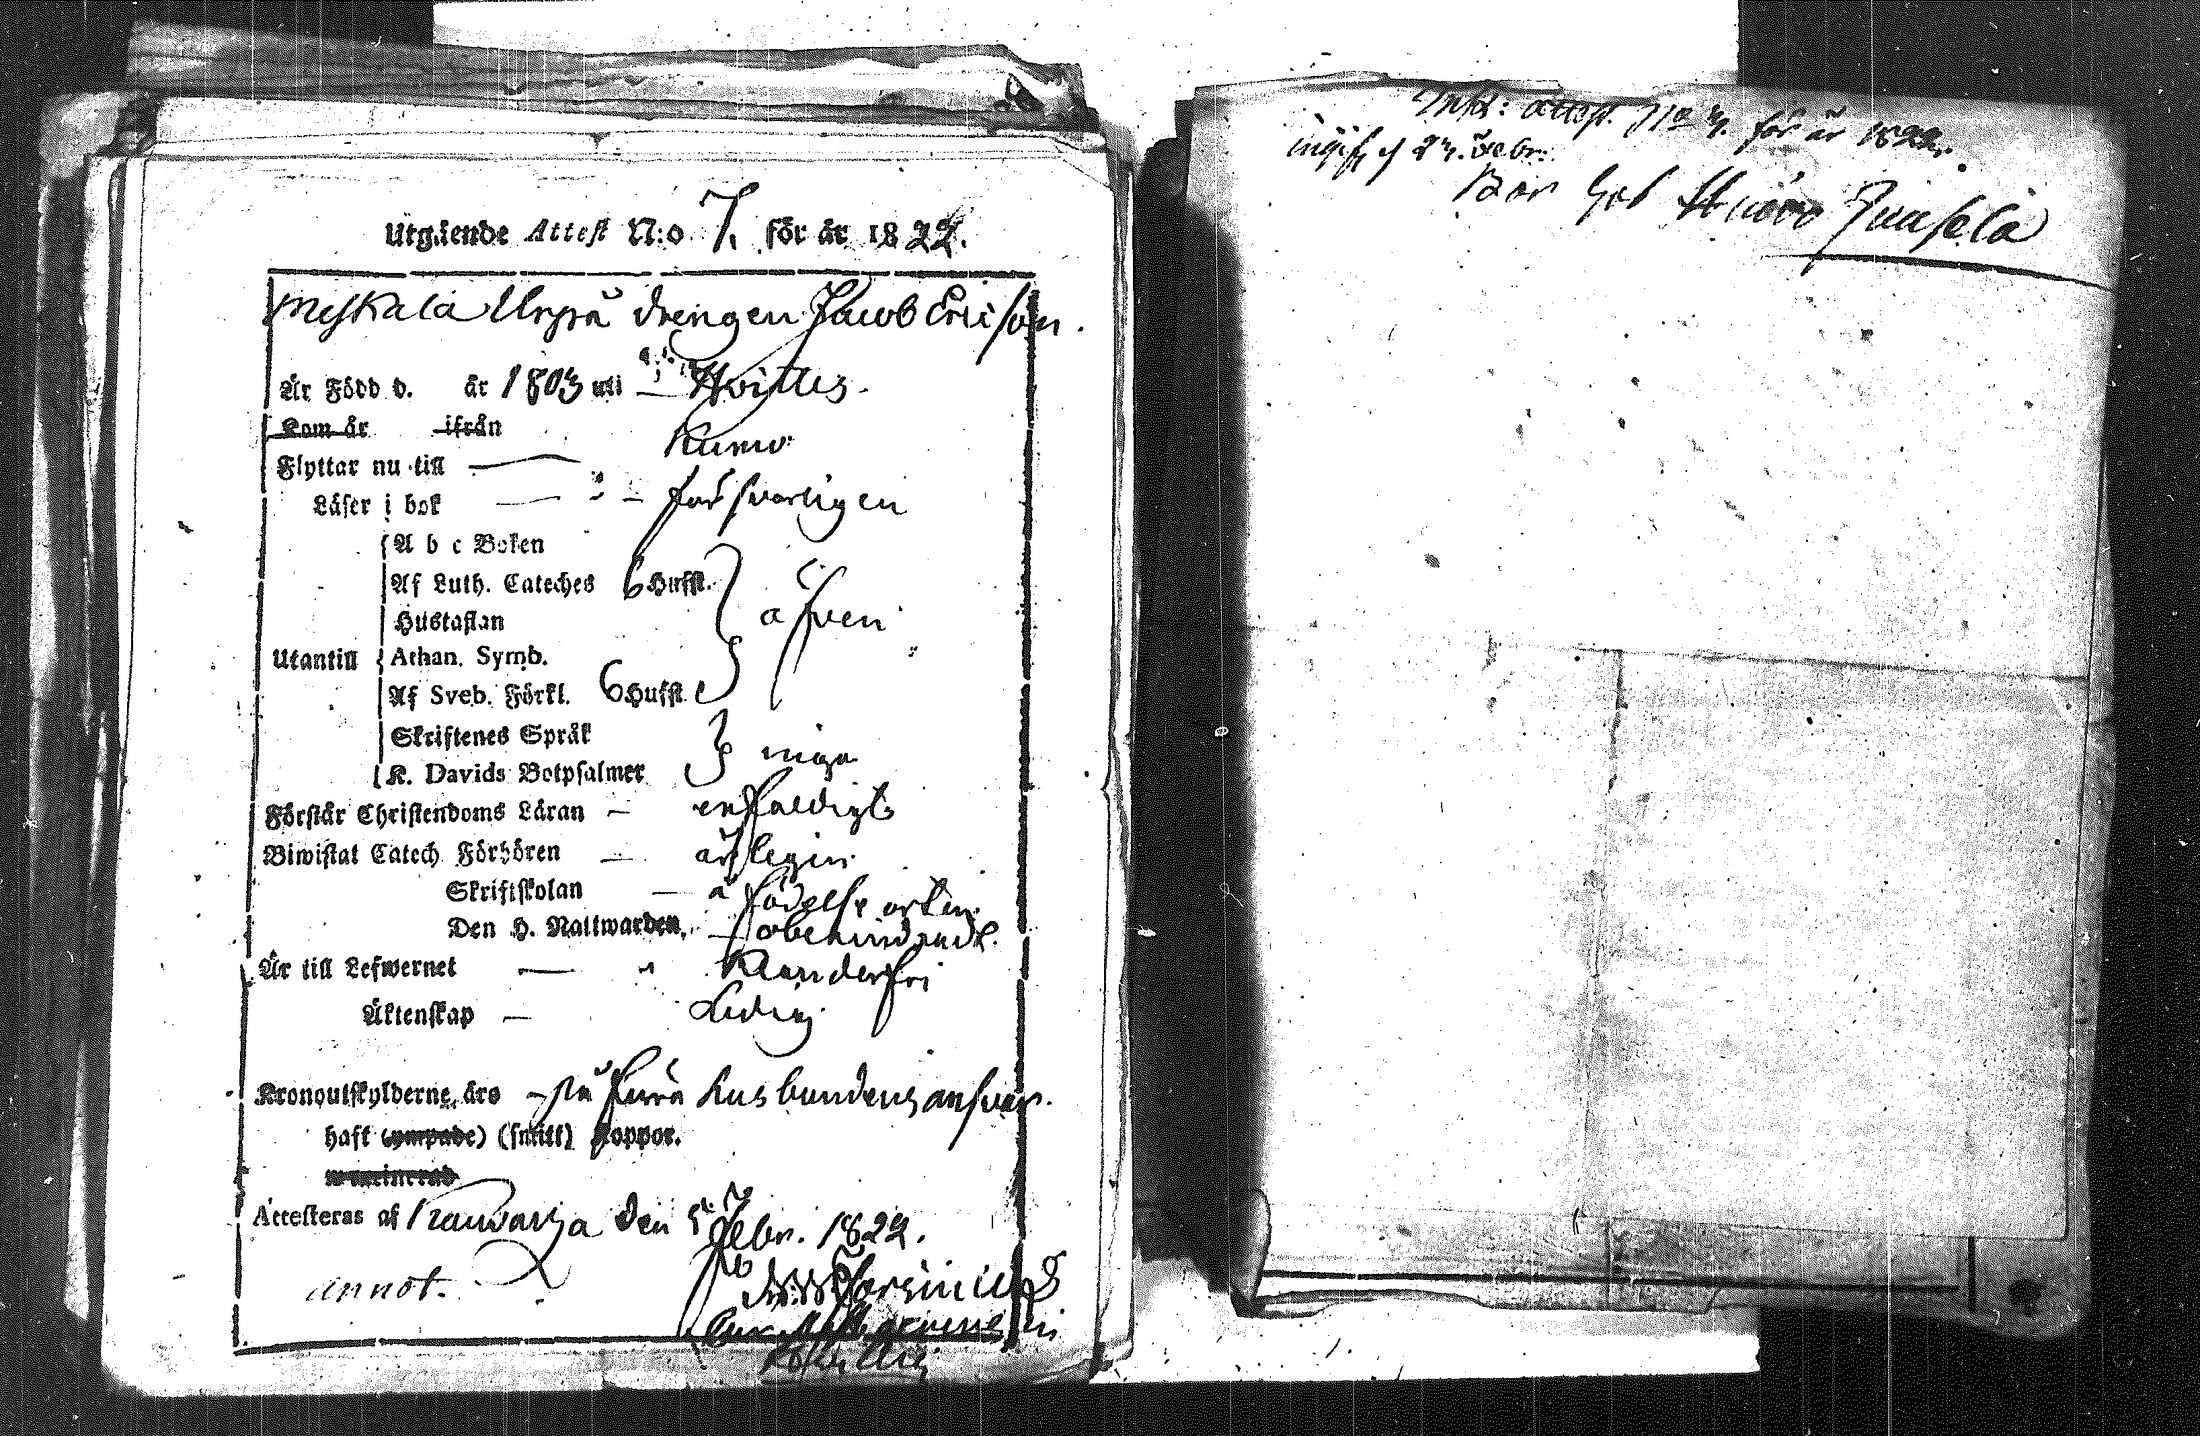 Utgående Attest N:o 7. för år 1822.
Meskala Urpå drengen Jacob Ericson.
Är Född d. år 1803 uti — Hvittis.
Kom år ifrån
Flyttar nu till — Kumo
Läser i bok — — försvarligen
A b c Boken
Af Luth. Cateches 6 Hufst.
Hustaflan äfven
Utantill Athan. Symb.
Af Sveb. Förkl. 6 Hufst.
Skriftenes Språk
K. Davids Botpsalmer inga
Förstår Christendoms Läran — enfaldigt
Biwistat Catech Förhören — årligen
Skriftskolan — å födelse orten.
Den H. Nattwarden, — obehindradt.
Är till Lefwernet — klanderfri
Äktenskap — Ledig
Kronoutskylderne äro — på förra husbondens answar.
haft (ympade) (smitt) koppor.
Attesteras af den Febr. 1822.
annot.
Ink: attest No 7. för år 1822.
ingift d 27. Febr.